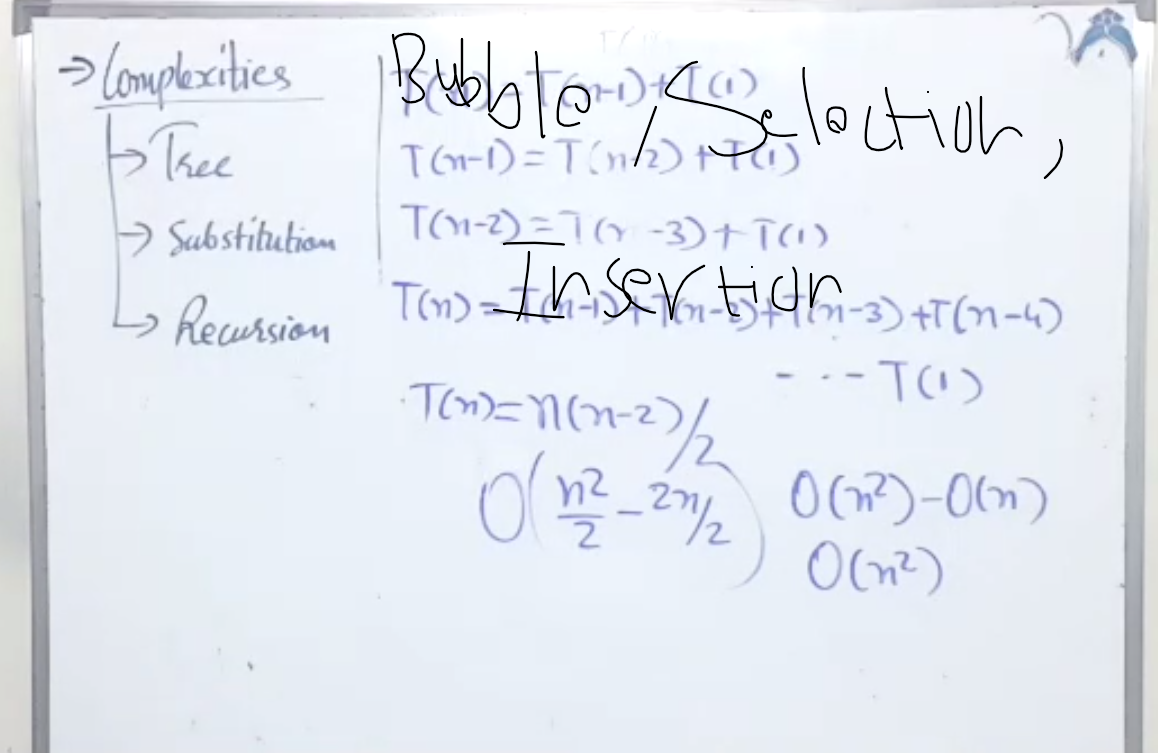 → Complexities
→ Tree
→ Substitution
→ Recursion
Bubble, Selection,
Insertion
T(n) = T(n-1) + T(1)
T(n-1) = T(n-2) + T(1)
T(n-2) = T(n-3) + T(1)
T(n) = T(n-1) + T(n-2) + T(n-3) + T(n-4)
- - - T(1)
T(n) = n(n-2)/2
O(n²/2 - 2n/2) O(n²) - O(n)
O(n²)